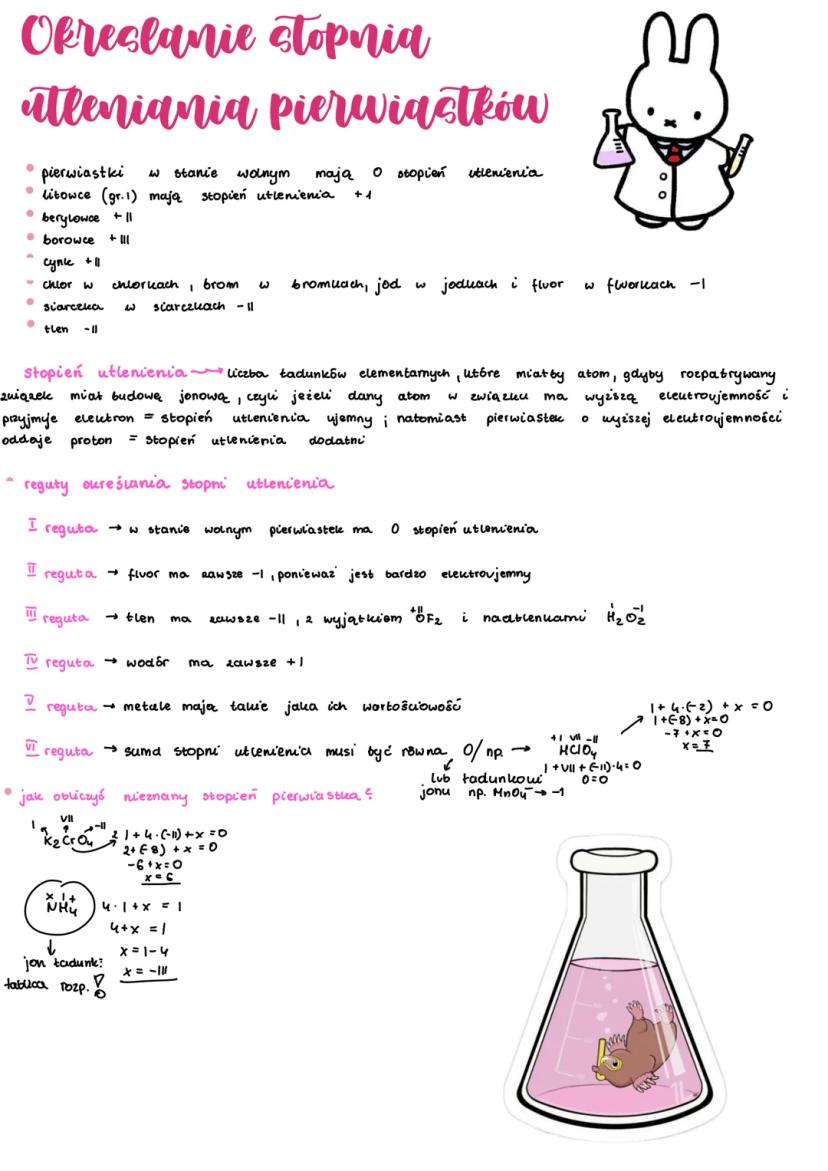 Określanie stopnia
utleniania pierwiastków
pierwiastki w stanie wolnym mają 0 stopień utlenienia
litowce (gr.1) mają stopień utlenienia +1
berylowce +II
borowce +III
cynk +II
chlor w chlorkach, brom w bromkach, jod w jodkach i fluor w fluorkach -I
siarczka w siarczkach -II
tlen -II
stopień utlenienia → liczba ładunków elementarnych, które miałby atom, gdyby rozpatrywany
związek miał budowę jonową, czyli jeżeli dany atom w związku ma wyższą elektroujemność i
przyjmuje elektron = stopień utlenienia ujemny; natomiast pierwiastek o wyższej elektroujemności
oddaje proton = stopień utlenienia dodatni
reguły określania stopni utlenienia
I reguła → w stanie wolnym pierwiastek ma 0 stopień utlenienia
II reguła → fluor ma zawsze -I, ponieważ jest bardzo elektroujemny
III reguła → tlen ma zawsze -II, z wyjątkiem +II OF2 i nadtlenkami I -1 H2O2
IV reguła → wodór ma zawsze +1
V reguła → metale mają takie jaka ich wartościowość
1 + 4·(-2) + x = 0
1+(-8)+x=0
-7+x=0
x=7
VI reguła → suma stopni utlenienia musi być równa 0/ np. →
+I VII -II
HClO4
1+VII+(-II)·4=0
0=0
lub ładunkowi
jonu np. MnO4⁻ → -1
jak obliczyć nieznany stopień pierwiastka?
1 VII ? -II
K2CrO4
2·1+4·(-II)+x=0
2+(-8)+x=0
-6+x=0
x=6
x 1+
NH4
4·1+x = 1
4+x = 1
x=1-4
x = -III
jon ładunk:
tablica rozp.!